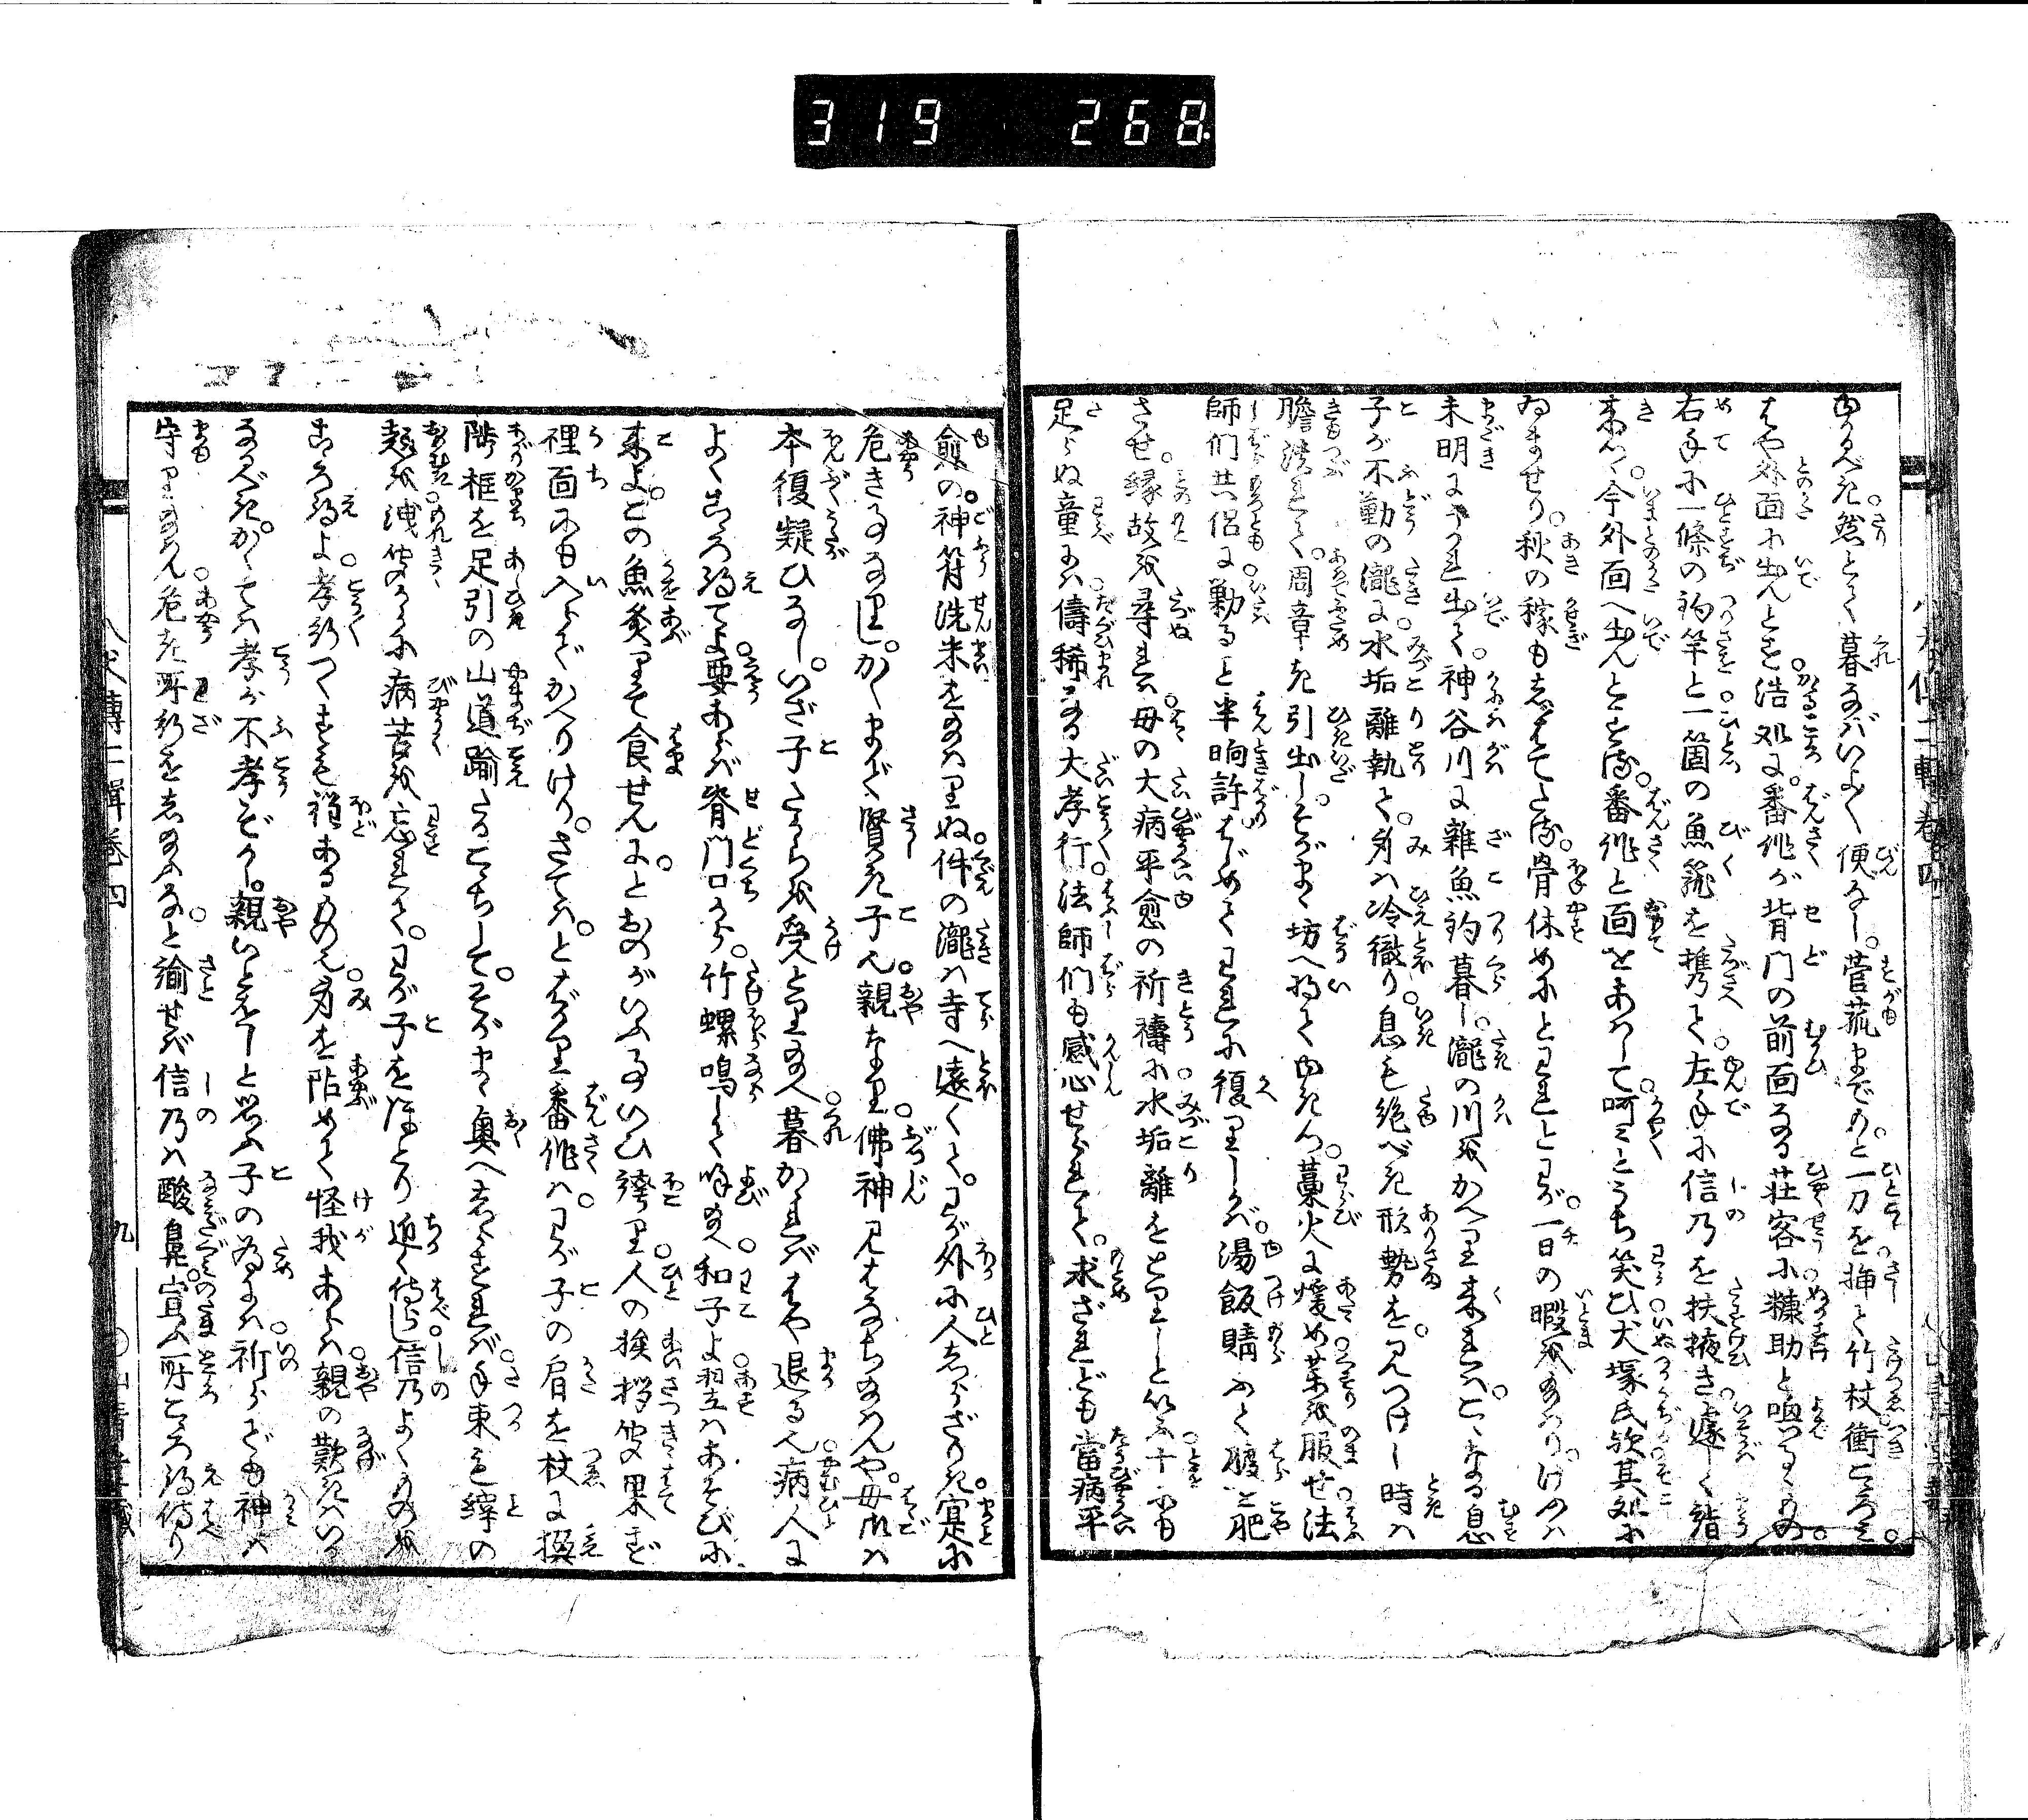 319 268
ゆくべき。然とて暮なばいよゝ便なし。菅菰までのと。一刀を挿て竹杖衝こゝろみ。
はや外面に出んとす浩処に。番作が背門の前面なる荘客に糠助と喚るゝもの。
右手に一條の釣竿と一箇の魚籠を携て。左手に信乃を扶掖き。遽しく詣
来つ。今外面へ出んとする。番作と面をあはして呵々とうち笑ひ。犬塚氏歟其処に
ゐませり。秋の稼もしはてたる。骨休めにとわれとわが。一日の暇を給はり。けふは
未明よりうち出て。神谷川に雑魚釣暮し。瀧の川をかへり来れば。こゝなる息
子が不動の瀧に水垢離執て。身は冷徹り。息も絶べき形勢を。見つけし時は
膽潰れて。周章き引出し。そがまゝ坊へ将てゆきつ。藁火に煖め薬を服せ。法
師们共侶に勦ると半晌許。はじめてわれに復りしかば。湯飯賜ふて腹を肥
させ。縁故を尋れば。母の大病平愈の祈祷に水垢離をとりしと答ふ。十にも
足らぬ童には儔稀なる大孝行。法師们も感心せられて。求ざれども當病平
愈の。神符洗米を給はりぬ。件の瀧は寺へ遠くて。わが外に人しらざりき。寔に
危き事なりし。かくまで賢き子也親なり。佛神見はなち給はんや。母御は
本復疑ひなし。いざ子どもらを受とり給へ。暮かゝればはや退る也。病人に
よくこゝろ得てよ。要あらば背門口から。竹螺鳴して呼給へ。和子よ翌はあそびに
来よ。この魚炙りて食せんに。とおのがいふ事いひ誇り。人の挨拶に果ず
裡面にも入らでかへりけり。さては。とばかり番作は。わが子の肩を杖に携
階框を足引の山道踰るこゝちして。そがまゝ奥へしりぞけば。手束も縡の
趣を洩聞つるに病苦を忘れて。わが子をほとり近く侍らし。信乃よくものを
こゝろ得よ。孝行つくすも程あるもの也。身を陷めて怪我あらば。親の歎きはいかゞ
なるべき。かくては孝が不孝ぞかし。親いとをしと思ふ子の為には祈らずとも神は
守り給はん。危き所行をし給ふな。と諭せば信乃は酸鼻。宣ふ所こゝろ得侍り
八犬傳二輯巻四
九
山青堂藏